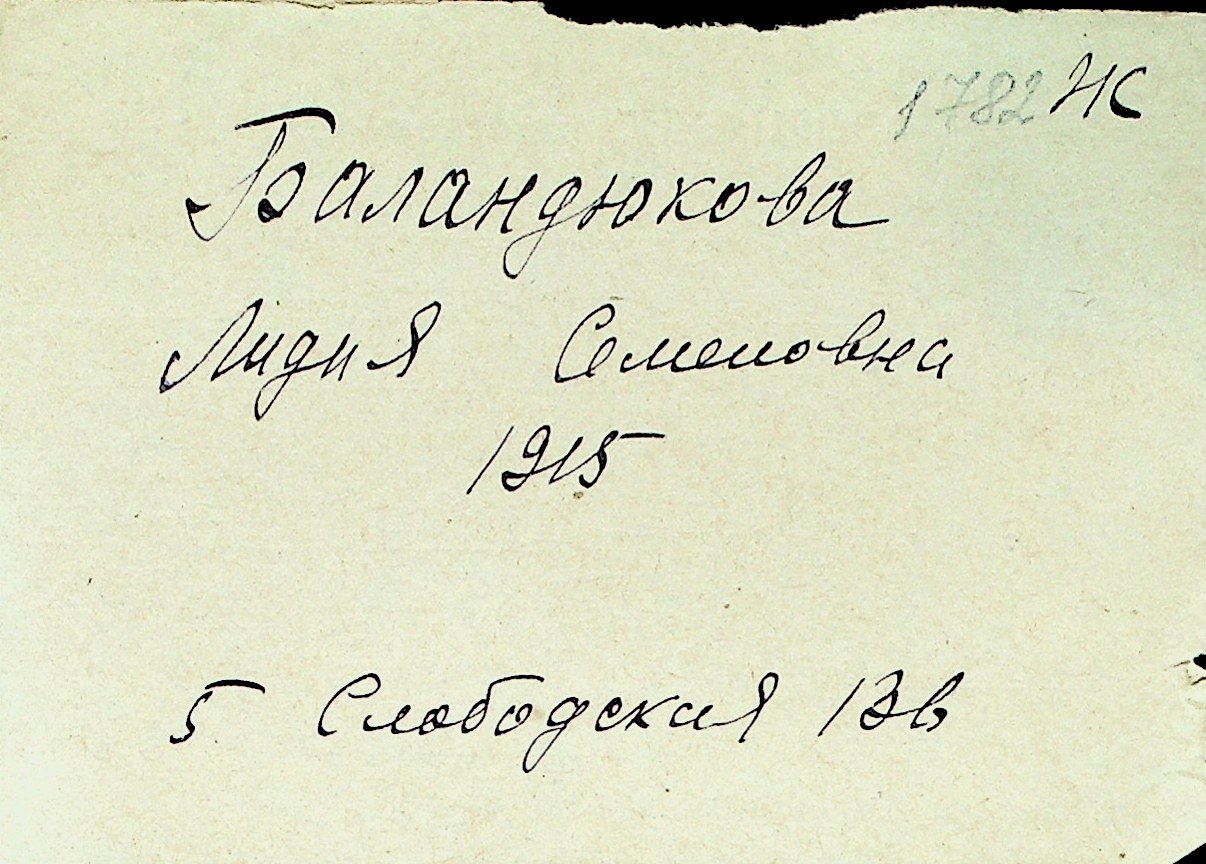 1782 Ж
Баландюкова
Лидия Семеновна
1915
5 Слободская 13в